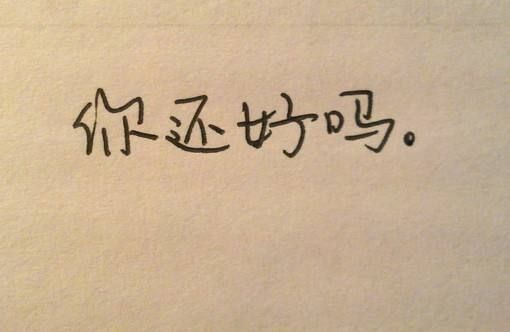 你还好吗。